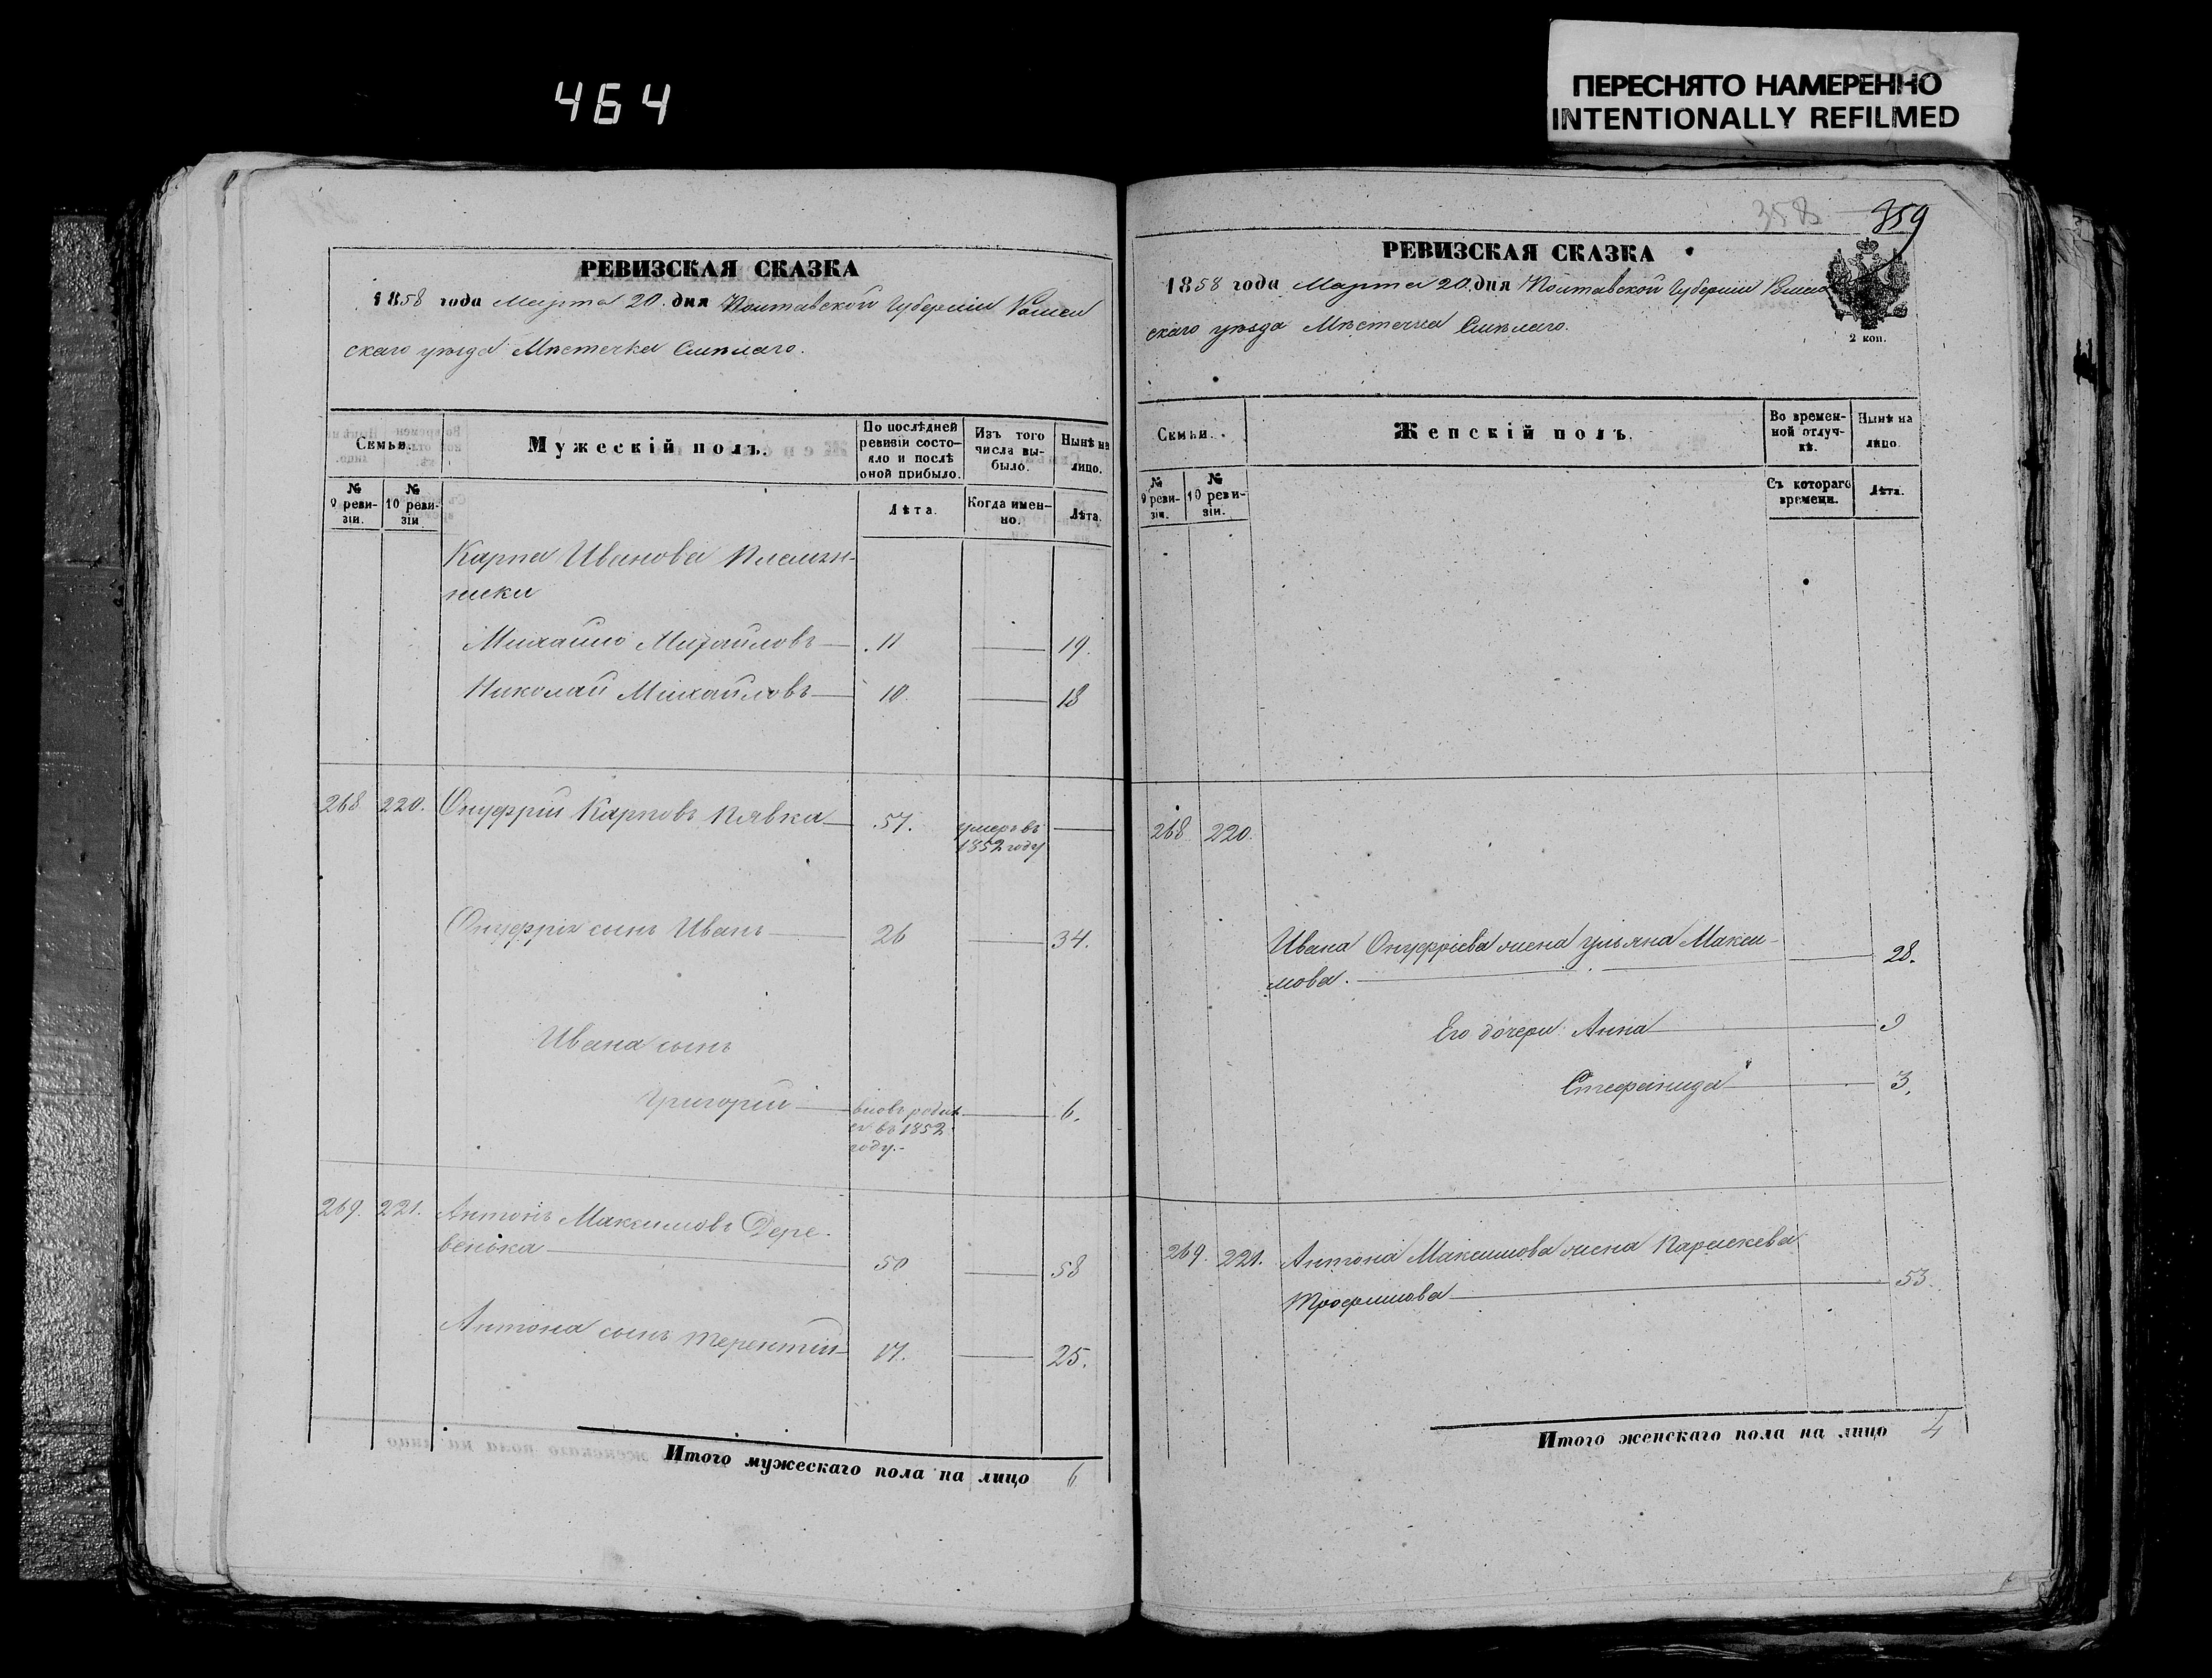 464
ПЕРЕСНЯТО НАМЕРЕННО
INTENTIONALLY REFILMED
РЕВИЗСКАЯ СКАЗКА
1858 года Марта 20. дня Полтавской Губерніи Ромен
скаго уѣзда Мѣстечка Смѣлаго.
Семьи.
Мужескій полъ.
По послѣдней
ревизіи состо-
яло и послѣ
оной прибыло.
Изъ того
числа вы-
было.
Нынѣ на
лицо.
№
9 реви-
зіи.
№
10 реви-
зіи
Лѣта.
Когда имен-
но.
Лѣта.
Карпа Иванова Племян-
ники
Михайло Михайловъ 11 19.
Николай Михайловъ 10 18
268 220. Онуфрій Карповъ Пявка 57. умеръ въ
1852 году
Онуфрія сынъ Иванъ 26 34.
Ивана сынъ
Григорій вновь родил
ся въ 1852 6.
году.
269. 221. Антонъ Максимовъ Дере-
венька 50 58
Антона сынъ Терентій 17. 25.
Итого мужескаго пола на лицо 6
358 359
РЕВИЗСКАЯ СКАЗКА
1858 года Марта 20. дня Полтавской Губерніи Ромен
скаго уѣзда Мѣстечка Смѣлаго.
2 коп.
Семьи.
Женскій полъ.
Во времен-
ной отлуч-
кѣ.
Нынѣ на
лицо.
№
9 реви-
зіи.
№
10 реви-
зіи.
Съ котораго
времени.
Лѣта.
268 220.
Ивана Онуфріева жена Ульяна Макси-
мова. 28.
Его дочери Анна 9
Стефанида 3.
269. 221. Антона Максимова жена Параскева
Трофимова 53.
Итого женскаго пола на лицо 4